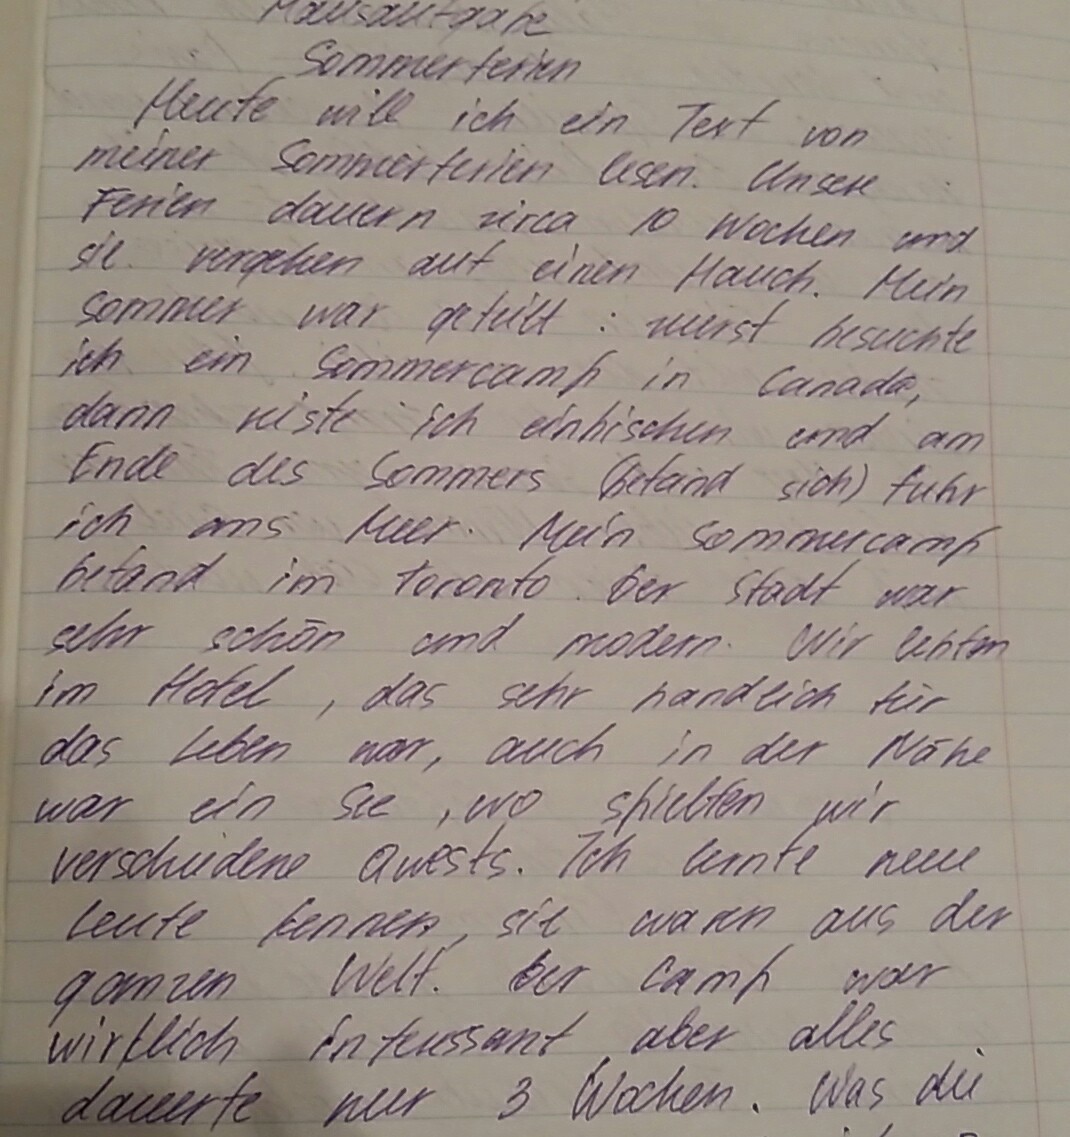 Hausaufgabe
Sommerferien
Heute will ich ein Text von
meiner Sommerferien lesen. Unsere
Ferien dauern zirca 10 Wochen und
sie vergehen auf einen Hauch. Mein
Sommer war gefüllt : zuerst besuchte
ich ein Sommercamp in Canada,
dann reiste ich einbischen und am
Ende des Sommers (befand sich) fuhr
ich ans Meer. Mein Sommercamp
befand im Toronto. Der Stadt war
sehr schön und modern. Wir lebten
im Hotel, das sehr handlich für
das Leben war, auch in der Nähe
war ein See, wo spielten wir
verschiedene Quests. Ich lernte neue
Leute kennen, sie waren aus der
ganzen Welt. Der Camp war
wirklich interessant, aber alles
dauerte nur 3 Wochen. Was die